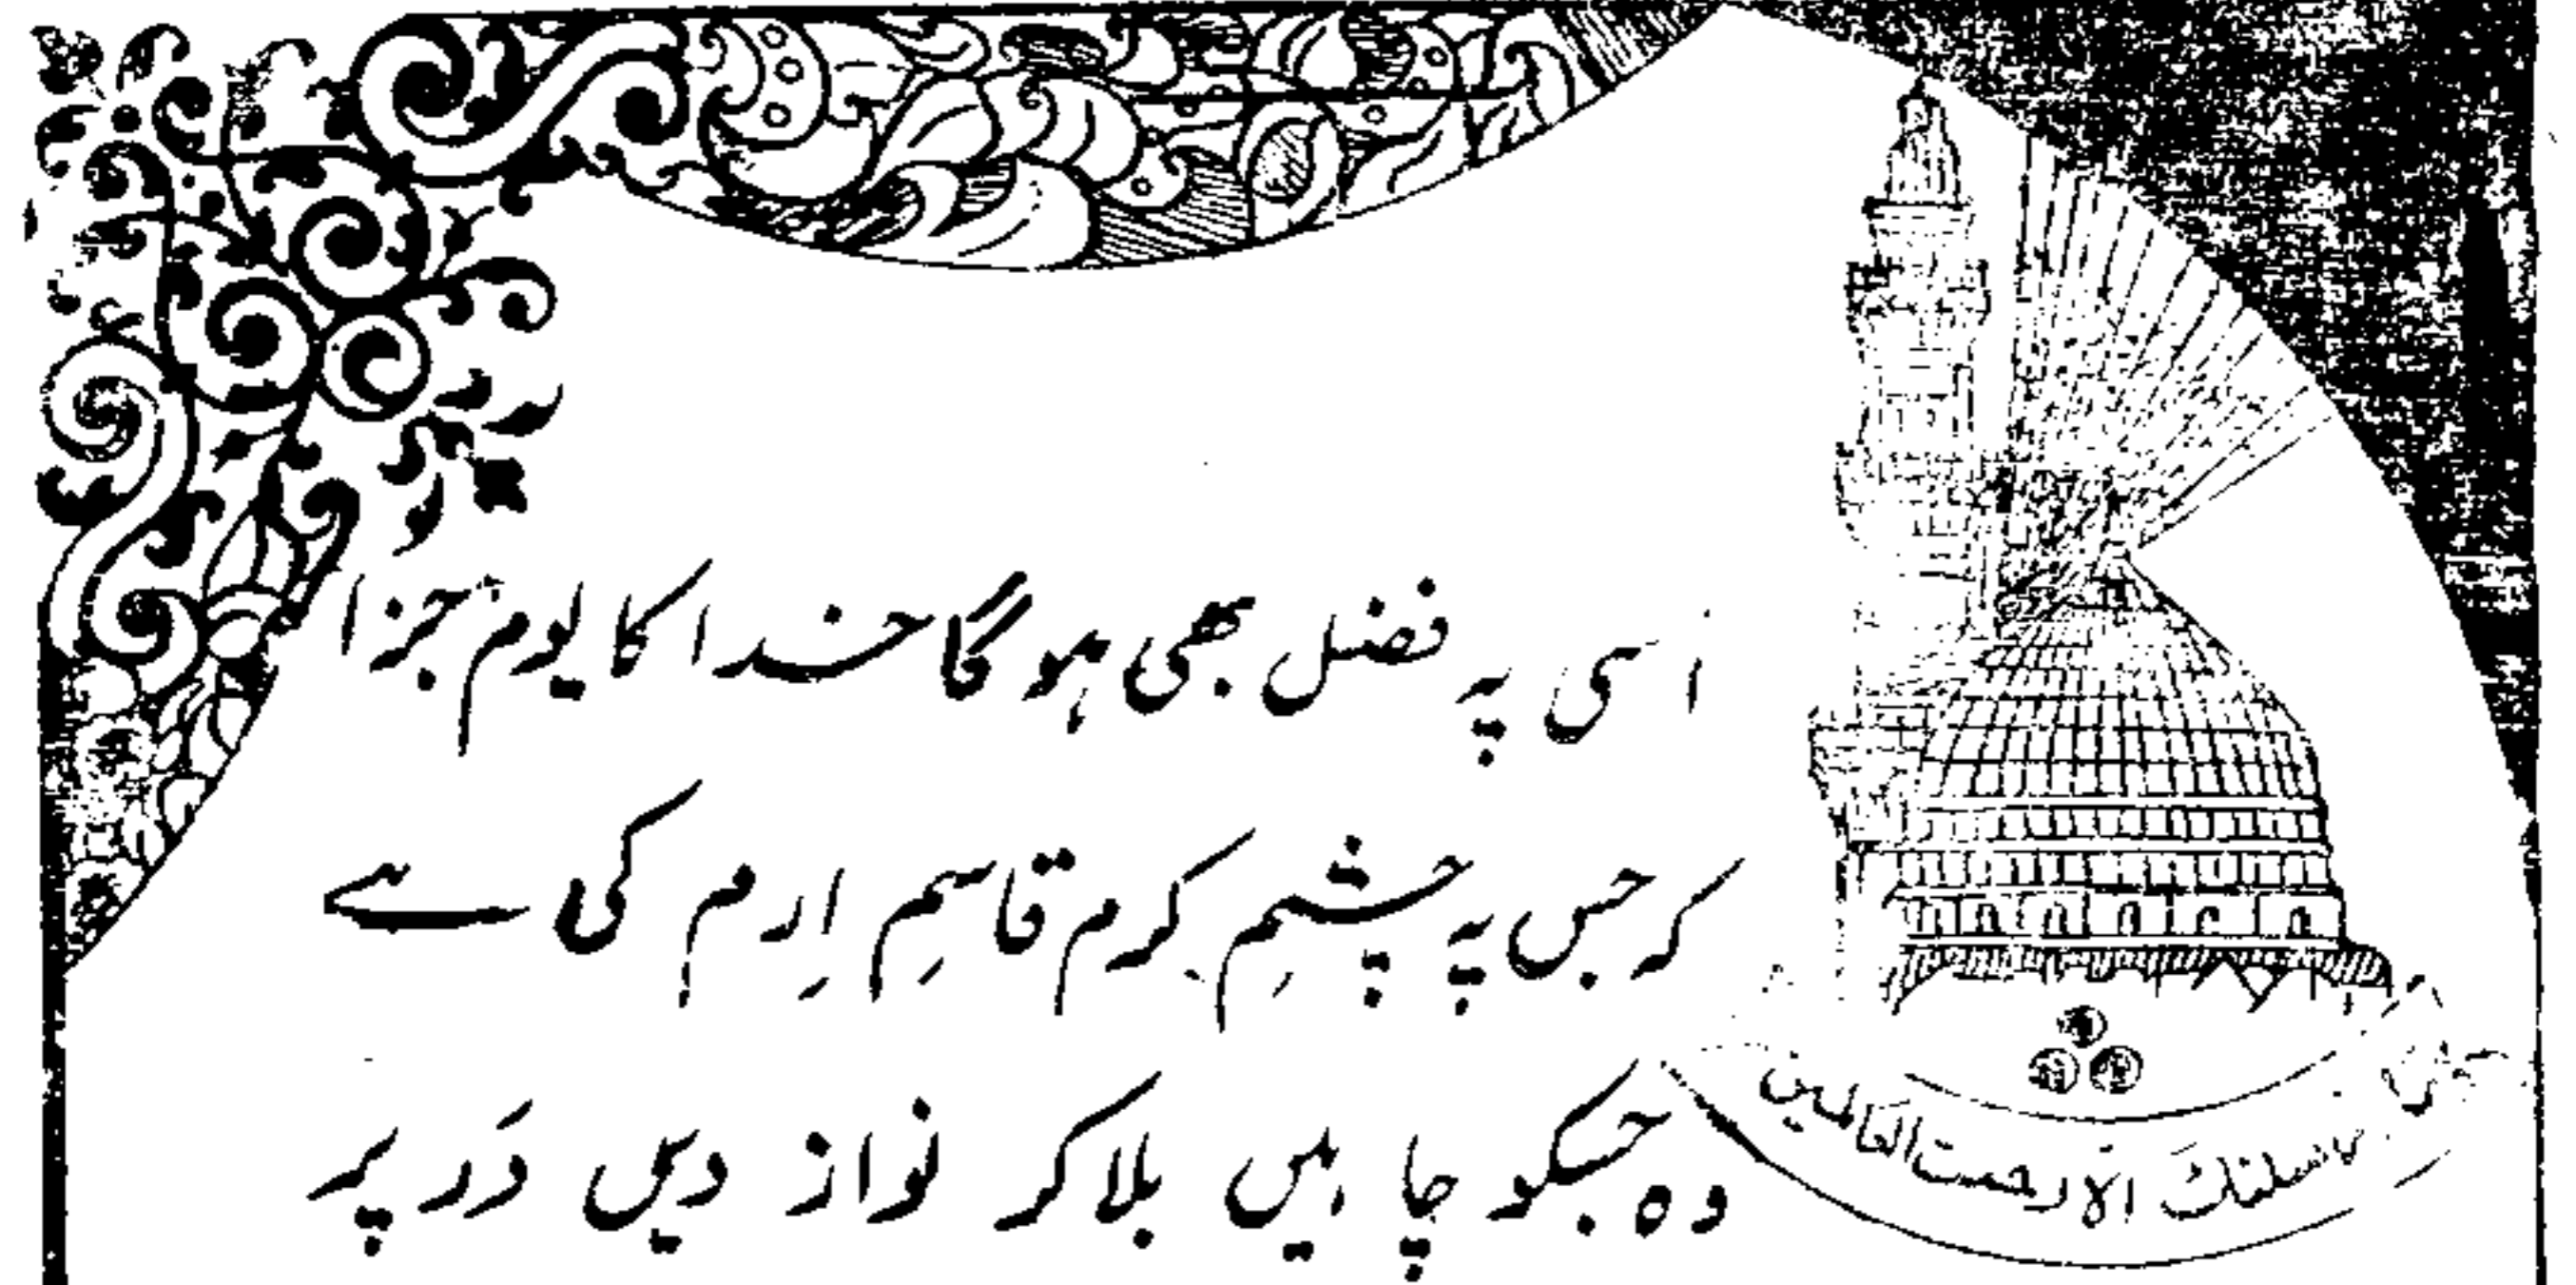 اُسی پہ فضل بھی ہوگا خدا کا یوم جزا
کہ جس پہ چشمِ کرم قاسمِ اِرم کی ہے
وہ جسکو چاہیں بلا کر نواز دیں دَر پر
ارسلنٰکَ الّا رحمت العالمین